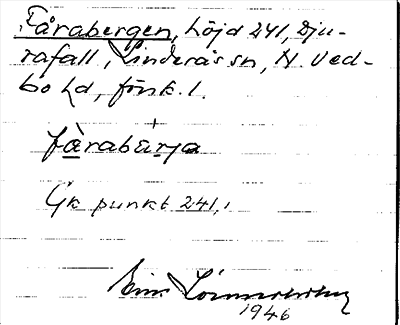 Fårabergen, höjd 241, Dju-
rafall, Linderås sn, N. Ved-
bo hd, Jönk. l.
fàrabärja
Gk punkt 241,1
1946